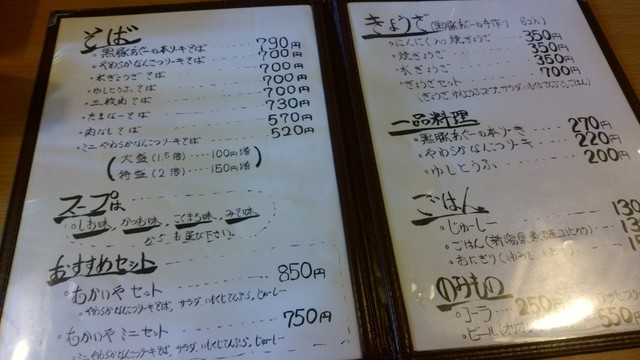 そば
・黒豚あぐーの本ソーキそば 790円
・やわらかなんこつソーキそば 700円
・水ぎょうざそば 700円
・ゆしとうふそば 700円
・三枚肉そば 700円
・たまなーそば 730円
・肉なしそば 570円
・ミニやわらかなんこつソーキそば 520円
(大盛(1.5倍)‥‥100円増
特盛(2倍)‥‥150円増)
スープは
・しお味、かつお味、こくまろ味、みそ味
からお選び下さい。
おすすめセット
・むかいやセット 850円
・やわらかなんこつソーキそば、サラダ、じゅーしー
・むかいやミニセット 750円
・ミニやわらかなんこつソーキそば、サラダ、じゅーしー
ぎょうざ(黒豚あぐーの手作り 8コ入)
・にんにく入り焼ぎょうざ 350円
・焼ぎょうざ 350円
・水ぎょうざ 350円
・ぎょうざセット 700円
(ぎょうざ、ゆしとうふスープ、サラダ、ごはん)
一品料理
・黒豚あぐーの本ソーキ 270円
・やわらかなんこつソーキ 220円
・ゆしとうふ 200円
ごはん
・じゅーしー 130
・ごはん(新潟県産
・おにぎり
のみもの
・コーラ 250円
・ビール 550円